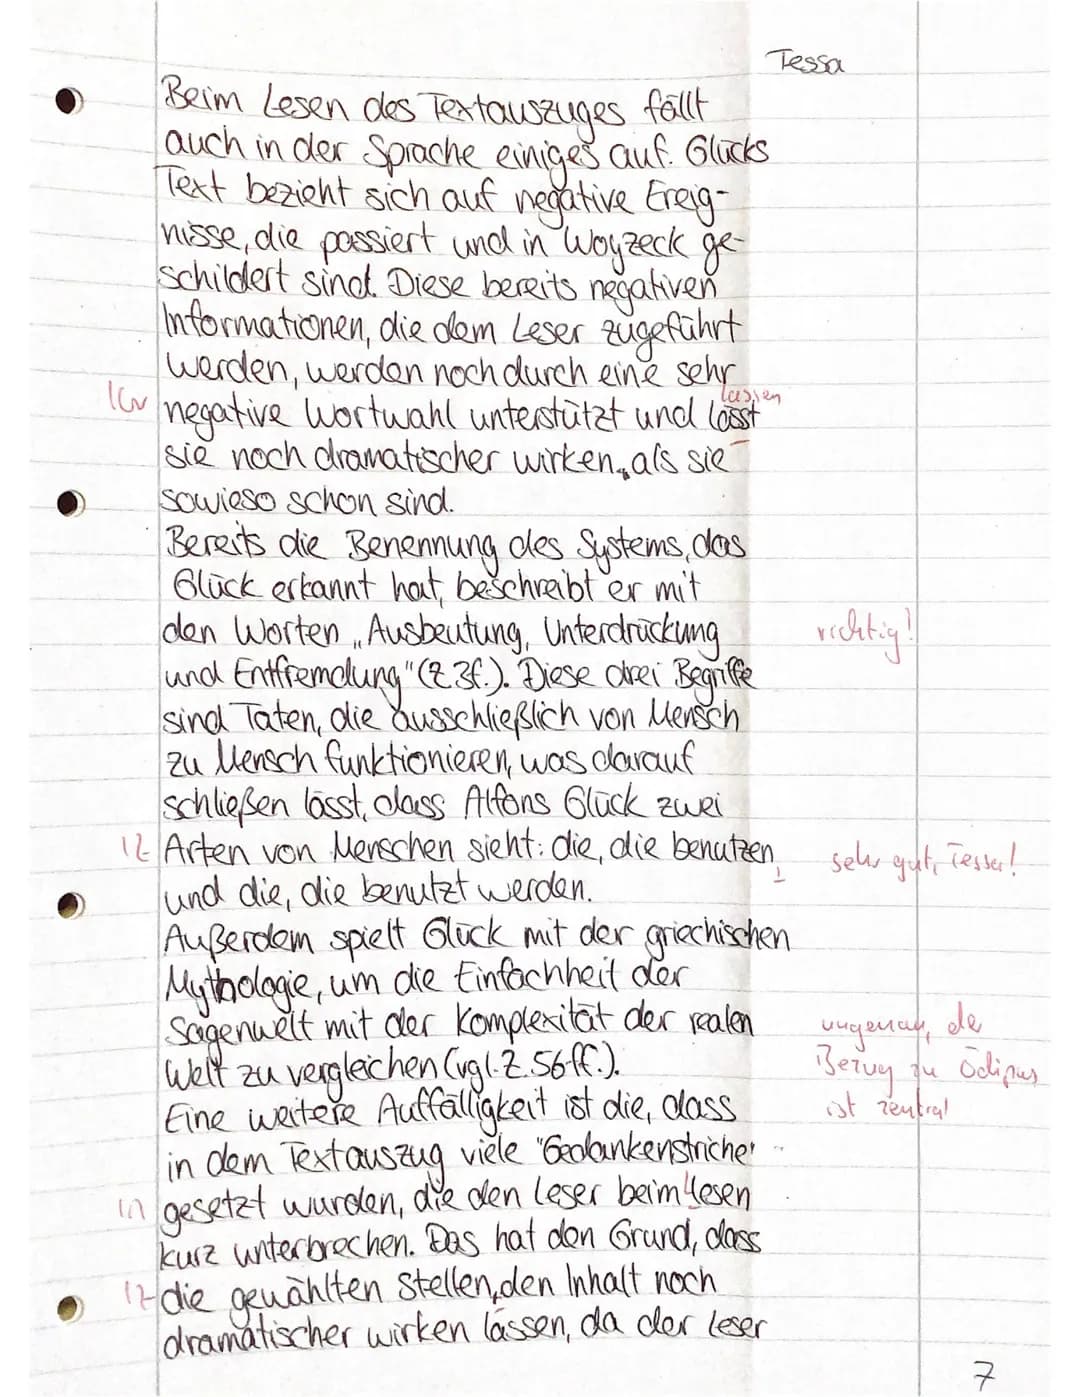 Tessa
Beim Lesen des Textauszuges fällt
auch in der Sprache einiges auf. Glücks
Text bezieht sich auf negative Ereig-
nisse, die passiert und in Woyzeck ge-
schildert sind. Diese bereits negativen
Informationen, die dem Leser zugeführt
werden, werden noch durch eine sehr
lassen
1Gr negative Wortwahl unterstützt und lässt
sie noch dramatischer wirken, als sie
sowieso schon sind.
Bereits die Benennung des Systems, das
Glück erkannt hat, beschreibt er mit
den Worten „Ausbeutung, Unterdrückung richtig!
und Entfremdung" (Z. 3f.). Diese drei Begriffe
sind Taten, die ausschließlich von Mensch
zu Mensch funktionieren, was darauf
schließen lässt, dass Alfons Glück zwei
1Z Arten von Menschen sieht: die, die benutzen, sehr gut, Tessa!
und die, die benutzt werden.
Außerdem spielt Glück mit der griechischen
Mythologie, um die Einfachheit der
Sagenwelt mit der Komplexität der realen ungenau, de
Welt zu vergleichen (vgl. Z. 56ff.). Bezug zu Ödipus
Eine weitere Auffälligkeit ist die, dass ist zentral
in dem Textauszug viele "Gedankenstriche"
gesetzt wurden, die den Leser beim Lesen
kurz unterbrechen. Das hat den Grund, dass
1Z die gewählten Stellen, den Inhalt noch
dramatischer wirken lassen, da der Leser
7